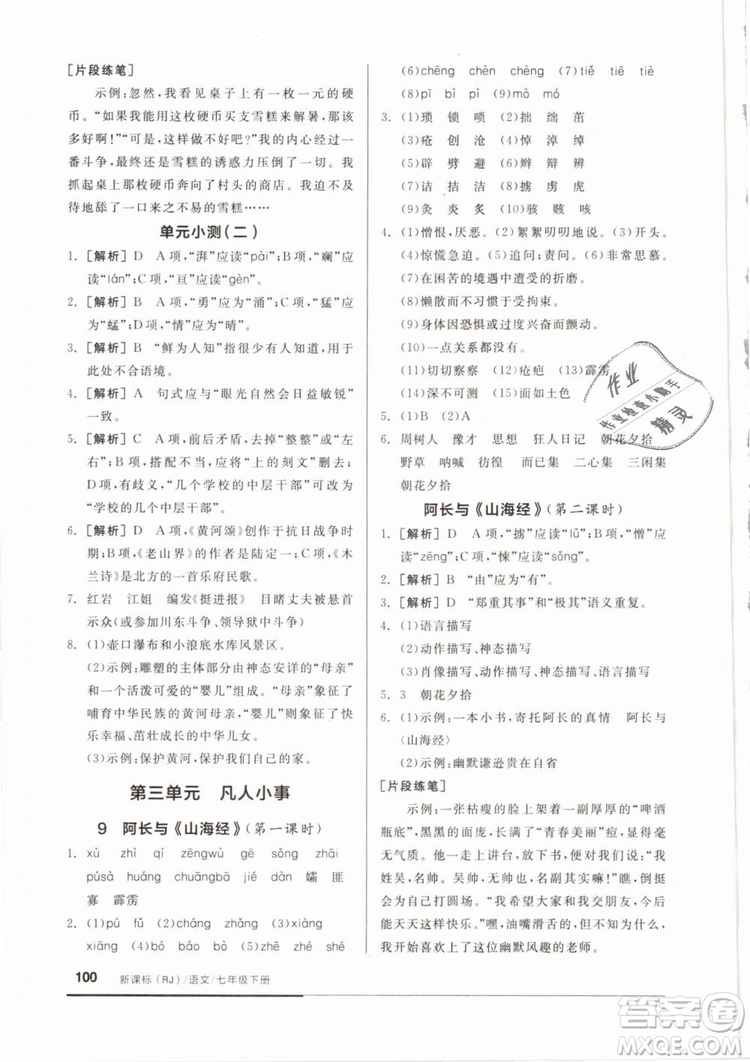 [片段练笔]
示例:忽然,我看见桌子上有一枚一元的硬
币。“如果我能用这枚硬币买支雪糕来解暑,那该
多好啊!”“可是,这样做好不好呢?”我的内心经过
一番斗争,渐渐地雪糕的诱惑力压倒了一切。我
抓起桌上那枚硬币奔向了村头的商店。我迫不及
待地舔了一口来之不易的雪糕……
单元小测(二)
1. [解析] D A项,“湃”应读“pài”;B项,“斓”应
读“lán”;C项,“亘”应读“gèn”。
2. [解析] B A项,“勇”应为“涌”;C项,“猛”应
为“蜢”;D项,“情”应为“晴”。
3. [解析] B “鲜为人知”指很少有人知道,用在
此处不合语境。
4. [解析] A 句式应与“眼光自然会日益敏锐”
一致。
5. [解析] B A项,前后不对应,去掉“能否”或在
“取得”前加“能否”;C项,去掉“整整”或“左
右”;D项,有歧义,“几个学校的中层干部”应为
“学校的几个中层干部”。
6. [解析] D A项,《黄河颂》创作于抗日战争时
期;B项,《老山界》的作者是陆定一;C项,《木
兰诗》是北方的一首乐府民歌。
7. 红岩 江姐 编发《挺进报》 目睹丈夫的首级
示众(或参加川东斗争、领导狱中斗争)
8. (1)壶口瀑布和小浪底水库风景区。
(2)示例:雕塑的主体部分由神态安详的“母亲”
和一个活泼可爱的“婴儿”组成。“母亲”象征了
哺育中华民族的黄河母亲,“婴儿”则象征了快
乐幸福、茁壮成长的中华儿女。
(3)示例:保护黄河,保护我们自己的家园。
第三单元 凡人小事
9 阿长与《山海经》(第一课时)
1. xù zhì qí zēngwù gē sǒng zhāi
púsà huáng chuāngbā jié dàn 孀 匪
寡 霹雳
2. (1)pú fǔ (2)chuāng chuàng (3)xiàng
xiāng (4)bēi bèi (5)zhé zhē shé
100 新课标(RJ)/语文/七年级下册
(6)chēng chèn chèng (7)tiě tiè tiē
(8)pī bì pì (9)mò mó
3. (1)琐 锁 唢 (2)拙 绌 茁
(3)疮 创 沧 (4)悼 焯 绰
(5)辟 劈 避 (6)辫 辩 辨
(7)诘 拮 洁 (8)掳 虏 虎
(9)灸 炎 炙 (10)骇 骸 咳
4. (1)憎恨,厌恶。(2)絮絮叨叨地说。(3)开头。
(4)惊慌急迫。(5)追问;责问。(6)非常思慕。
(7)在困苦的境遇中遭受的折磨。
(8)懒散而不习惯于受拘束。
(9)身体因恐惧或过度兴奋而颤动。
(10)一点关系都没有。
(11)切切察察 (12)疮疤 (13)霹雳
(14)深不可测 (15)面如土色
5. (1)B (2)A
6. 周树人 豫才 思想 狂人日记 朝花夕拾
野草 呐喊 彷徨 而已集 二心集 三闲集
朝花夕拾
阿长与《山海经》(第二课时)
1. [解析] D A项,“掳”应读“lǔ”;B项,“憎”应
读“zēng”;C项,“悚”应读“sǒng”。
2. [解析] B “由”应为“尤”。
3. [解析] D “郑重其事”和“极其”语义重复。
4. (1)语言描写
(2)动作描写、神态描写
(3)肖像描写、动作描写、神态描写、语言描写
5. 3 朝花夕拾
6. (1)示例:一本小书,寄托阿长的真情 阿长与
〈山海经〉
(2)示例:幽默谦逊贵在自省
[片段练笔]
示例:一张枯瘦的脸上架着一副厚厚的“啤酒
瓶底”,黑黑的面庞,几许“青春美丽痘”,显得有点
无气质。他走上讲台,放下书,开始自我介绍:“我
姓吴。吴帅,没有帅的吴帅。名副其实嘛!”瞧,他
还会自己打圆场。“希望我们能天天快乐,因为今
后能天天这样快乐。”嘿,油嘴滑舌,但不知为什么,
我反而喜欢上了这位幽默风趣的老师。
作业
作业检查小助手
精灵
答案圈
MXQE.COM